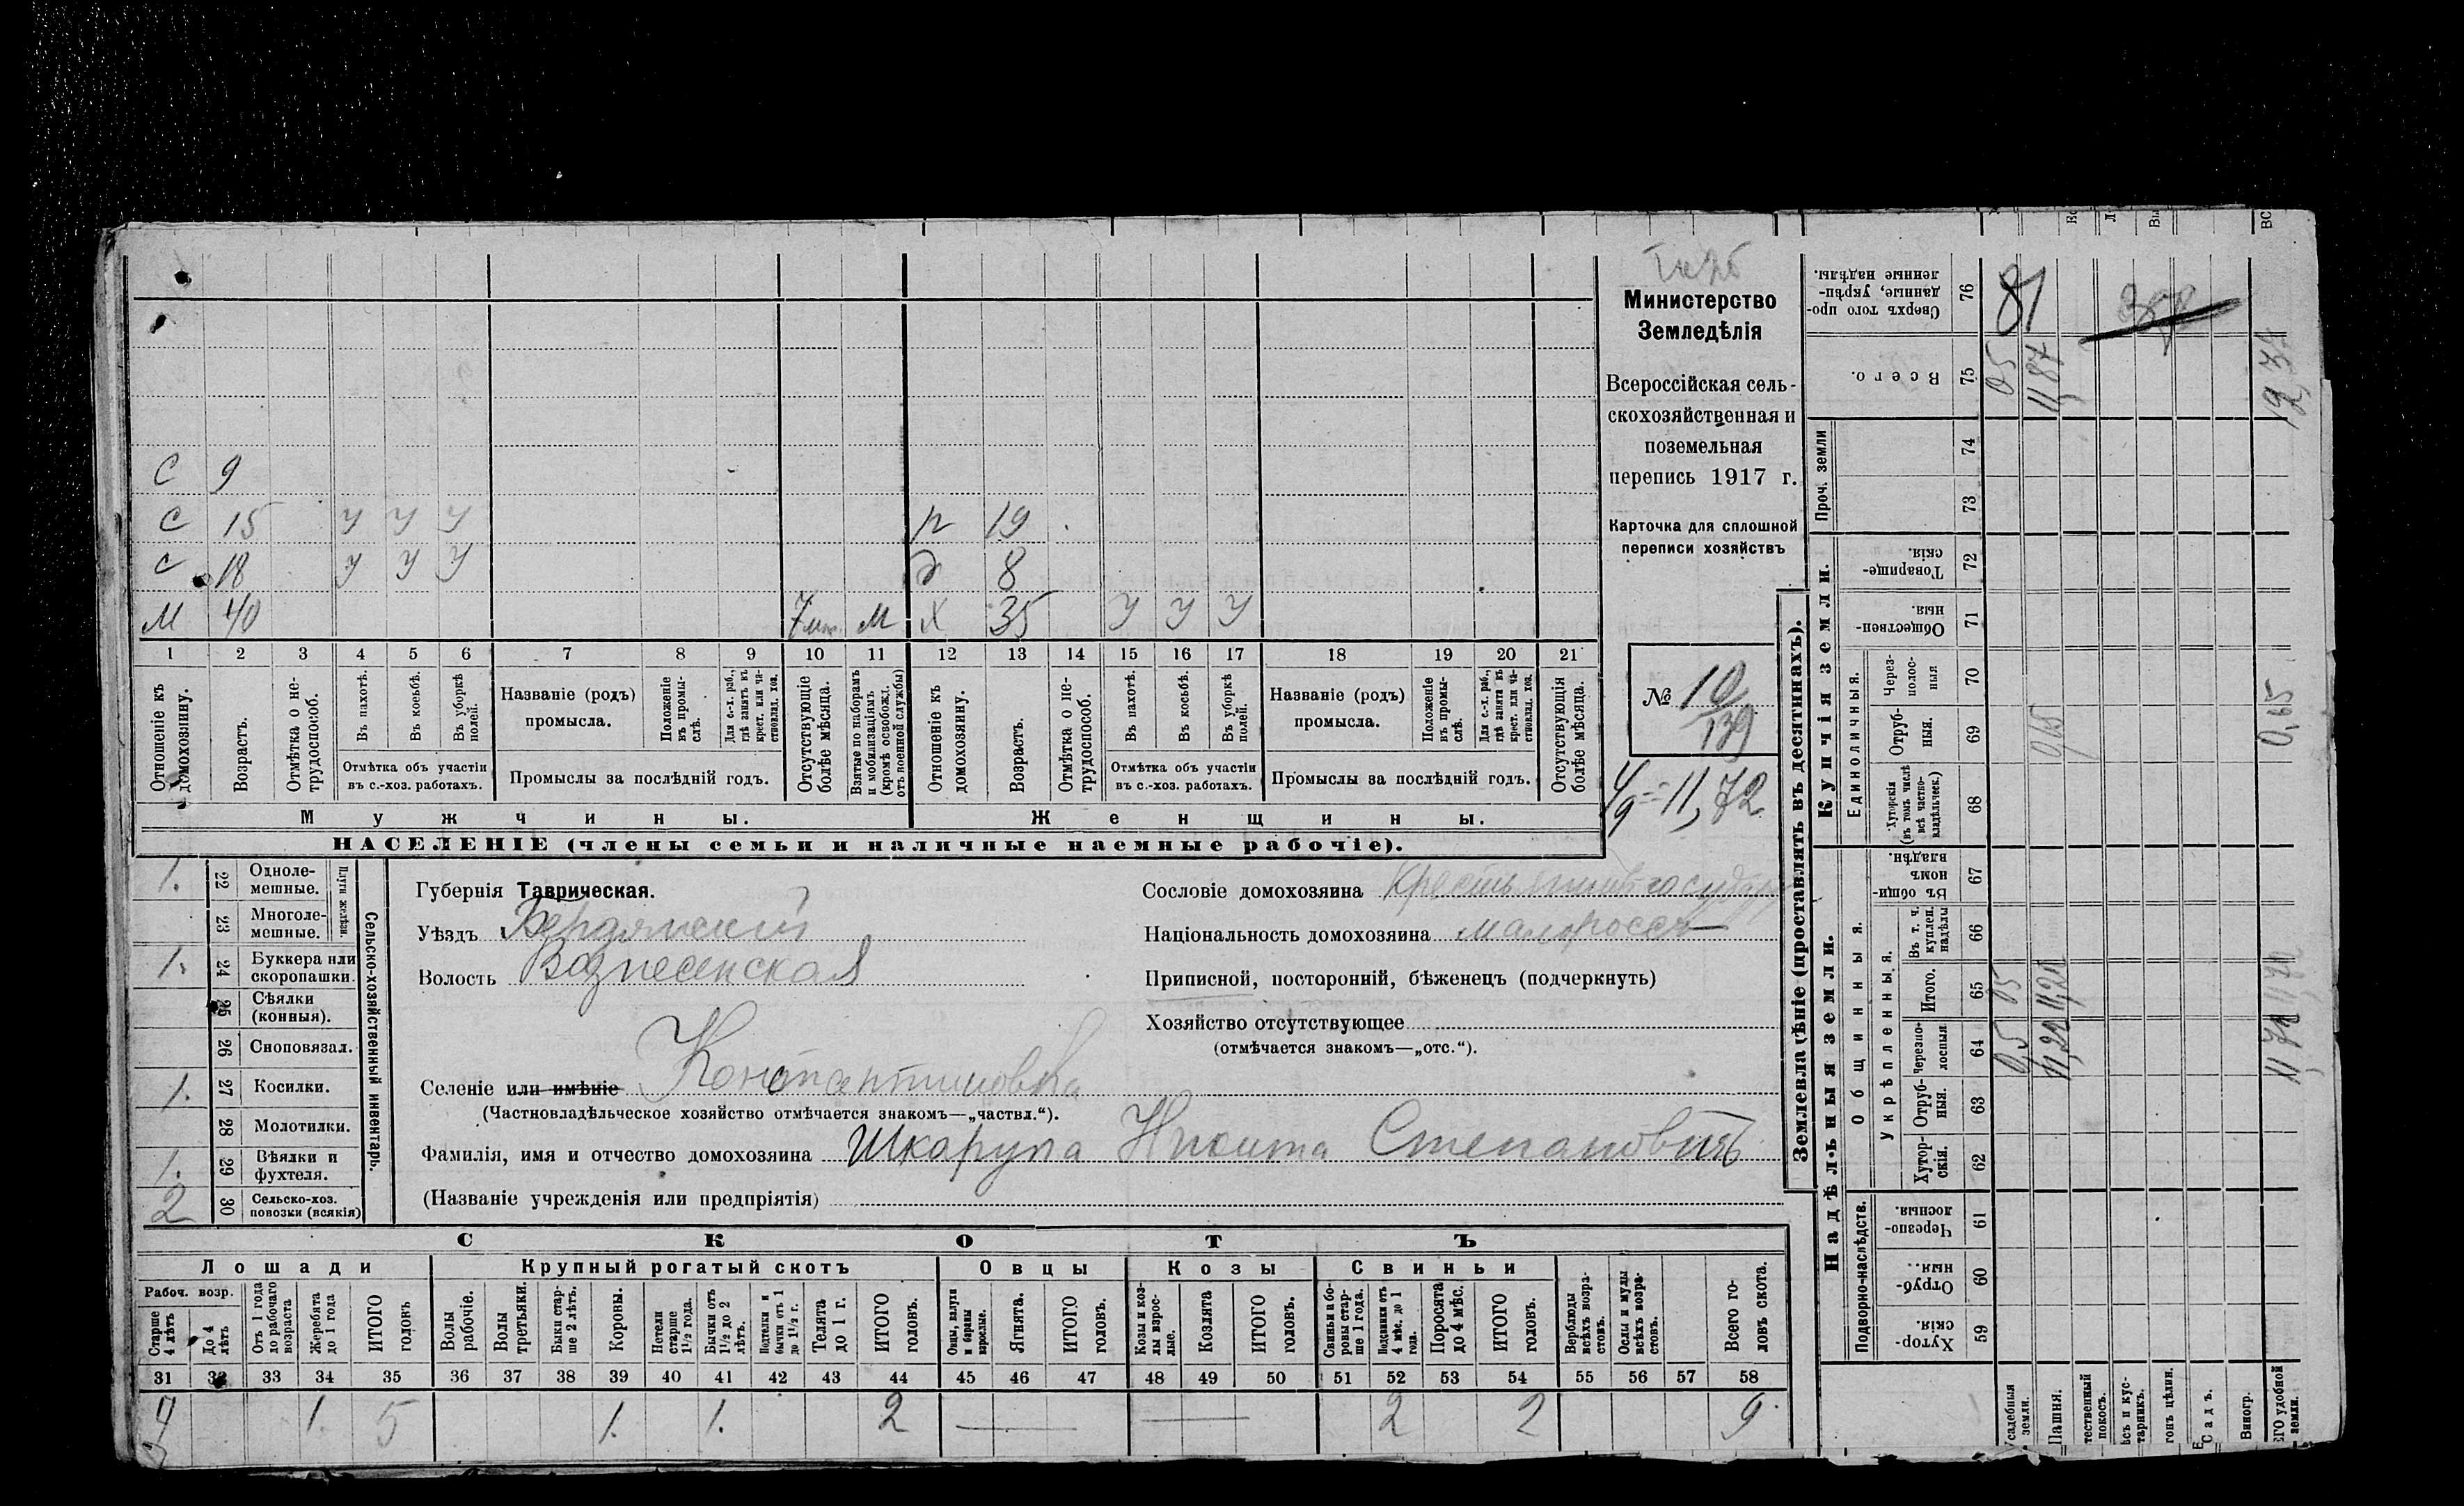 Министерство
Земледѣлія
Всероссійская сель-
скохозяйственная и
поземельная
перепись 1917 г.
Карточка для сплошной
переписи хозяйствъ
№ 10
139
11,72
С 9
С 15 У У У п 19
С 18 У У У д 8
М 40 7 М Х 35 У У У
1 2 3 4 5 6 7 8 9 10 11 12 13 14 15 16 17 18 19 20 21
Отношеніе къ домохозяину.
Возрастъ.
Отмѣтка о не-трудоспособ.
Въ пахотѣ.
Въ косьбѣ.
Въ уборкѣ полей.
Отмѣтка объ участіи
въ с.-хоз. работахъ.
Названіе (родъ)
промысла.
Положеніе въ промы-слѣ.
Для с.-х. раб., гдѣ занятъ въ крест. или ча-стновлад. хоз.
Промыслы за послѣдній годъ.
Отсутствующіе болѣе мѣсяца.
Взятые по наборамъ и мобилизаціямъ (кромѣ освобожд. отъ военной службы)
Отношеніе къ домохозяину.
Возрастъ.
Отмѣтка о не-трудоспособ.
Въ пахотѣ.
Въ косьбѣ.
Въ уборкѣ полей.
Отмѣтка объ участіи
въ с.-хоз. работахъ.
Названіе (родъ)
промысла.
Положеніе въ промы-слѣ.
Для с.-х. раб., гдѣ занята въ крест. или ча-стновлад. хоз.
Промыслы за послѣдній годъ.
Отсутствующія болѣе мѣсяца.
Мужчины.
Женщины.
НАСЕЛЕНІЕ (члены семьи и наличные наемные рабочіе).
1. 22 Одноле-мешные.
23 Многоле-мешные.
Плуги желѣзн.
1. 24 Буккера или скоропашки.
25 Сѣялки (конныя).
26 Сноповязал.
1. 27 Косилки.
28 Молотилки.
1. 29 Вѣялки и фухтеля.
2 30 Сельско-хоз. повозки (всякія)
Сельско-хозяйственный инвентарь.
Губернія Таврическая.
Уѣздъ Бердянскій
Волость Вознесенская
Селеніе или имѣніе Константиновка
(Частновладѣльческое хозяйство отмѣчается знакомъ—„частвл.“).
Фамилія, имя и отчество домохозяина Шкарупа Никита Степановичъ
(Названіе учрежденія или предпріятія)
Сословіе домохозяина
Національность домохозяина малороссъ
Приписной, посторонній, бѣженецъ (подчеркнуть)
Хозяйство отсутствующее
(отмѣчается знакомъ—„отс.“).
СКОТЪ
Лошади
Крупный рогатый скотъ
Овцы
Козы
Свиньи
Рабоч. возр.
Старше 4 лѣтъ
До 4 лѣтъ
Отъ 1 года до рабочаго возраста
Жеребята до 1 года
ИТОГО головъ
Волы рабочіе.
Волы третьяки.
Быки стар-ше 2 лѣтъ.
Коровы.
Нетели старше 1½ года.
Бычки отъ 1½ до 2 лѣтъ.
Подтелки и бычки отъ 1 до 1½ г.
Телята до 1 г.
ИТОГО головъ.
Овцы, валухи и бараны взрослые.
Ягнята.
ИТОГО головъ.
Козы и коз-лы взрос-лые.
Козлята
ИТОГО головъ.
Свиньи и бо-ровы стар-ше 1 года.
Подсвинки отъ 4 мѣс. до 1 года.
Поросята до 4 мѣс.
ИТОГО головъ.
Верблюды всѣхъ возра-стовъ.
Ослы и мулы всѣхъ возра-стовъ.
Всего го-ловъ скота.
31 32 33 34 35 36 37 38 39 40 41 42 43 44 45 46 47 48 49 50 51 52 53 54 55 56 57 58
4 1 5 1. 1. 2 2 2 9
Землевладѣніе (проставлять въ десятинахъ).
Надѣльныя земли.
Купчія земли.
Проч. земли
Подворно-наслѣдств.
Общинныя.
Укрѣпленныя.
Единоличныя.
Хутор-скія. 59
Отруб-ныя. 60
Черезпо-лосныя. 61
Хутор-скія. 62
Отруб-ныя. 63
Черезпо-лосныя 64
Итого. 65
Въ т. ч. куплен. надѣлы 66
Въ общи-номъ владѣн. 67
Хуторскія (въ томъ числѣ всѣ частно-владѣльческ.) 68
Отруб-ныя. 69
Через-полос-ныя 70
Обществен-ныя. 71
Товарище-скія. 72
73
74
Всего. 75
Сверхъ того про-данные, укрѣп-ленные надѣлы. 76
Усадебныя земли.
Пашня.
Садъ.
Виногр.
0,5 05 05
11,22 0,65 11,87
0,65